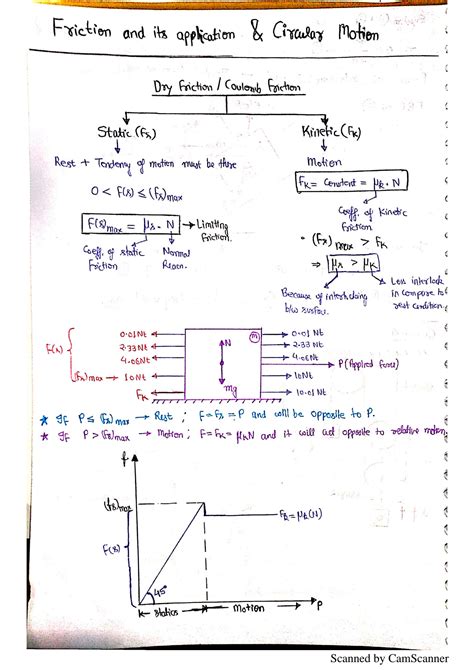 Friction and its application & Circular Motion
Dry Friction / Coulomb Friction
Static (Fs)
Kinetic (Fk)
Rest + Tendency of motion must be there
Motion
0 < F(s) ≤ (Fs)max
Fk = Constant = μk • N
F(s)max = μs • N → Limiting Friction
Coeff. of static Friction
Normal Reacn.
Coeff. of Kinetic Friction
• (Fs)max > Fk
⇒ μs > μk
Because of interlocking b/w surface.
Less interlock in compare to rest condition.
F(s)
0.01Nt
2.33Nt
4.06Nt
(Fs)max → 10Nt
Fk
N
mg
m
0.01 Nt
2.33 Nt
4.06Nt
P (Applied force)
10Nt
10.01 Nt
★ If P ≤ (Fs)max → Rest ; F = Fs = P and will be opposite to P.
★ If P > (Fs)max → Motion ; F = Fk = μkN and it will act opposite to relative motion.
f
(fs)max
Fk = μk(N)
F(s)
45°
Statics
Motion
P
Scanned by CamScanner